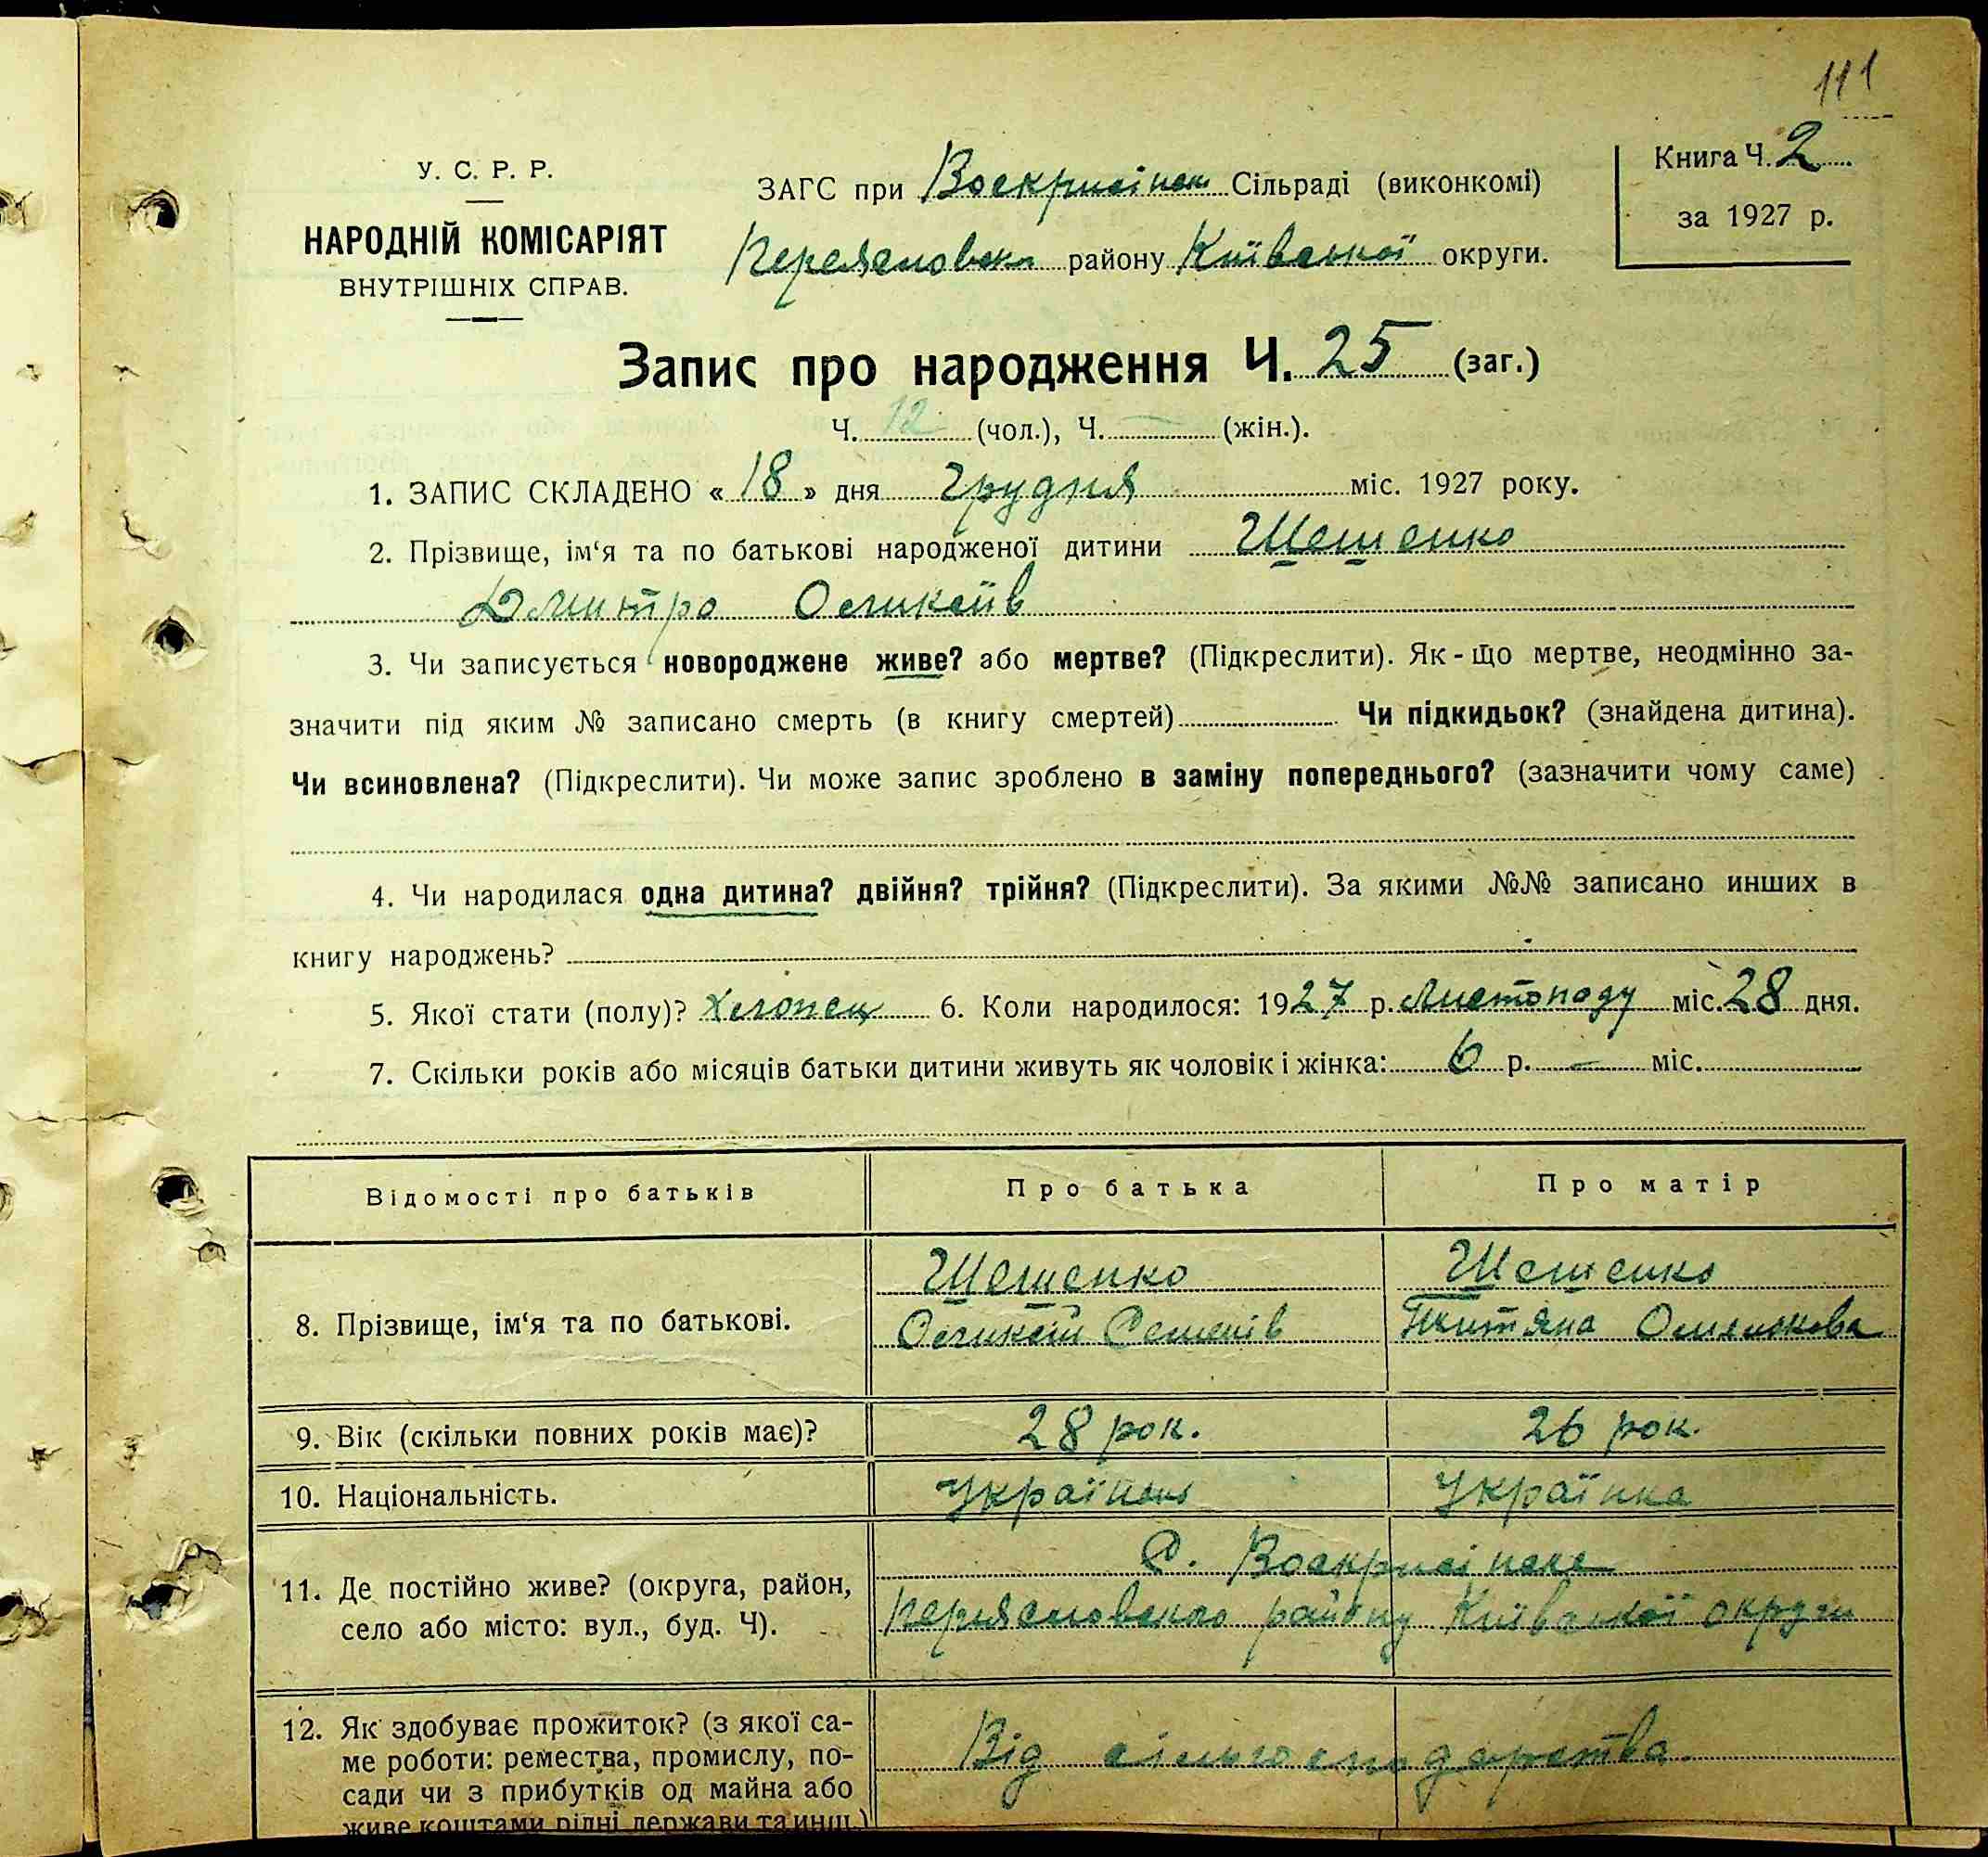 111
У. С. Р. Р.
НАРОДНІЙ КОМІСАРІЯТ
ВНУТРІШНІХ СПРАВ.
ЗАГС при Воскрисінськ Сільраді (виконкомі)
Переясловськ району Київської округи.
Книга Ч. 2
за 1927 р.
Запис про народження Ч. 25 (заг.)
Ч. 12 (чол.), Ч. — (жін.).
1. ЗАПИС СКЛАДЕНО « 18 » дня Грудня міс. 1927 року.
2. Прізвище, ім‘я та по батькові народженої дитини Шешенко
Дмитро Оликсіїв
3. Чи записується новороджене живе? або мертве? (Підкреслити). Як-що мертве, неодмінно за-
значити під яким № записано смерть (в книгу смертей) Чи підкидьок? (знайдена дитина).
Чи всиновлена? (Підкреслити). Чи може запис зроблено в заміну попереднього? (зазначити чому саме)
4. Чи народилася одна дитина? двійня? трійня? (Підкреслити). За якими №№ записано инших в
книгу народжень?
5. Якої стати (полу)? Хлопец 6. Коли народилося: 1927 р. Листопаду міс. 28 дня.
7. Скільки років або місяців батьки дитини живуть як чоловік і жінка: 6 р. — міс.
Відомості про батьків Про батька Про матір
8. Прізвище, ім‘я та по батькові.
Шешенко
Семенів
Шешенко
Титяна Омелькова
9. Вік (скільки повних років має)? 28 рок. 26 рок.
10. Національність. Українець Українка
11. Де постійно живе? (округа, район,
село або місто: вул., буд. Ч).
С. Воскрисінське
Переясловсько району Київської округи
12. Як здобуває прожиток? (з якої са-
ме роботи: ремества, промислу, по-
сади чи з прибутків од майна або
живе коштами рідні держави та инш.)
Від сільгосподарства